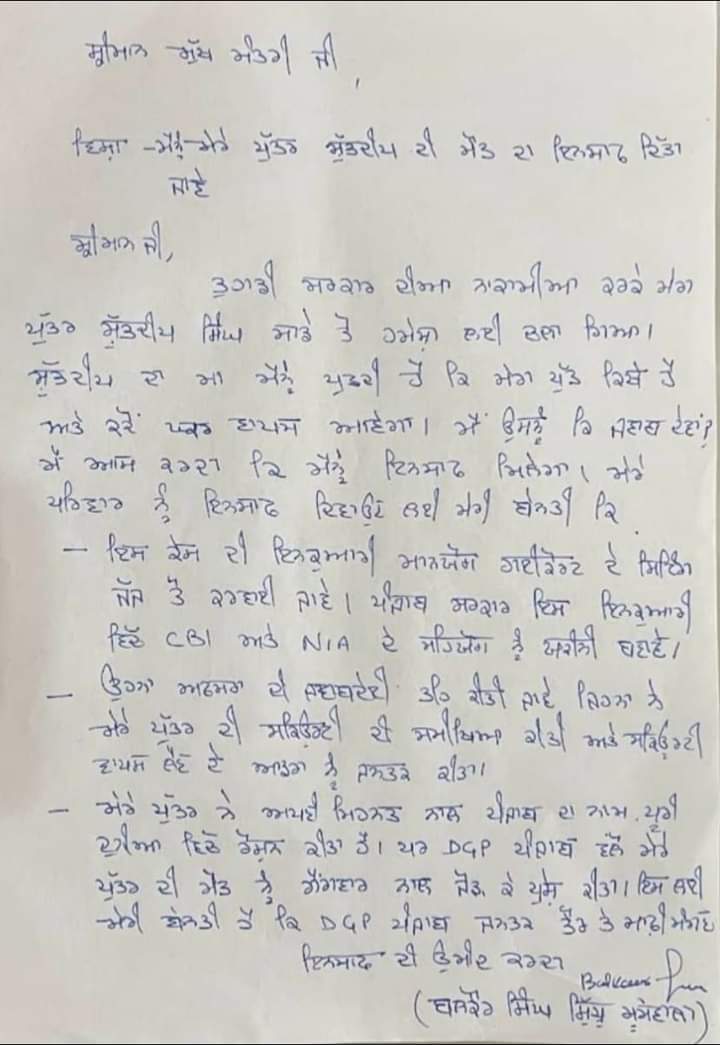 ਸ਼੍ਰੀਮਾਨ ਮੁੱਖ ਮੰਤਰੀ ਜੀ,
ਵਿਸ਼ਾ - ਮੈਨੂੰ ਮੇਰੇ ਪੁੱਤਰ ਸ਼ੁੱਭਦੀਪ ਦੀ ਮੌਤ ਦਾ ਇਨਸਾਫ ਦਿੱਤਾ
ਜਾਵੇ
ਸ਼੍ਰੀਮਾਨ ਜੀ,
ਤੁਹਾਡੀ ਸਰਕਾਰ ਦੀਆ ਨਾਕਾਮੀਆ ਕਰਕੇ ਮੇਰਾ
ਪੁੱਤਰ ਸ਼ੁੱਭਦੀਪ ਸਿੰਘ ਸਾਡੇ ਤੋਂ ਹਮੇਸ਼ਾ ਲਈ ਚਲਾ ਗਿਆ।
ਸ਼ੁੱਭਦੀਪ ਦਾ ਮਾ ਮੈਨੂੰ ਪੁਛਦੀ ਹੈ ਕਿ ਮੇਰਾ ਪੁੱਤ ਕਿਥੇ ਹੈ
ਅਤੇ ਕਦੋਂ ਘਰ ਵਾਪਸ ਆਵੇਗਾ। ਮੈਂ ਉਸਨੂੰ ਕਿ ਜਵਾਬ ਦੇਵਾਂ?
ਮੈਂ ਆਸ ਕਰਦਾ ਕਿ ਮੈਨੂੰ ਇਨਸਾਫ ਮਿਲੇਗਾ। ਮੇਰੇ
ਪਰਿਵਾਰ ਨੂੰ ਇਨਸਾਫ ਦਿਵਾਉਣ ਲਈ ਮੇਰੀ ਬੇਨਤੀ ਕਿ
- ਇਸ ਕੇਸ ਦੀ ਇਨਕੁਆਰੀ ਮਾਨਯੋਗ ਹਾਈਕੋਰਟ ਦੇ ਸਿਟਿੰਗ
ਜੱਜ ਤੋਂ ਕਰਵਾਈ ਜਾਵੇ। ਪੰਜਾਬ ਸਰਕਾਰ ਇਸ ਇਨਕੁਆਰੀ
ਵਿਚ CBI ਅਤੇ NIA ਦੇ ਸਹਿਯੋਗ ਨੂੰ ਯਕੀਨੀ ਬਣਾਵੇ।
- ਉਹਨਾ ਅਫਸਰਾ ਦੀ ਜਵਾਬਦੇਹੀ ਤਹਿ ਕੀਤੀ ਜਾਵੇ ਜਿਹਨਾ ਨੇ
ਮੇਰੇ ਪੁੱਤਰ ਦੀ ਸਕਿਉਰਟੀ ਦੀ ਸਮੀਖਿਆ ਕੀਤੀ ਅਤੇ ਸਕਿਉਰਟੀ
ਵਾਪਸ ਲੈਣ ਦੇ ਆਡਰਾ ਨੂੰ ਜਨਤਕ ਕੀਤਾ।
- ਮੇਰੇ ਪੁੱਤਰ ਨੇ ਅਪਣੀ ਮਿਹਨਤ ਨਾਲ ਪੰਜਾਬ ਦਾ ਨਾਮ ਪੂਰੀ
ਦੁਨੀਆ ਵਿਚ ਰੌਸ਼ਨ ਕੀਤਾ ਹੈ। ਪਰ DGP ਪੰਜਾਬ ਵਲੋਂ ਮੇਰੇ
ਪੁੱਤਰ ਦੀ ਮੌਤ ਨੂੰ ਗੈਂਗਵਾਰ ਨਾਲ ਜੋੜ ਕੇ ਪੇਸ਼ ਕੀਤਾ। ਇਸ ਲਈ
ਮੇਰੀ ਬੇਨਤੀ ਹੈ ਕਿ DGP ਪੰਜਾਬ ਜਨਤਕ ਤੌਰ ਤੇ ਮਾਫ਼ੀ ਮੰਗਣ
ਇਨਸਾਫ ਦੀ ਉਮੀਦ ਕਰਦਾ
Balkaur
(ਬਲਕੌਰ ਸਿੰਘ ਸਿੱਧੂ ਮੂਸੇਵਾਲਾ)